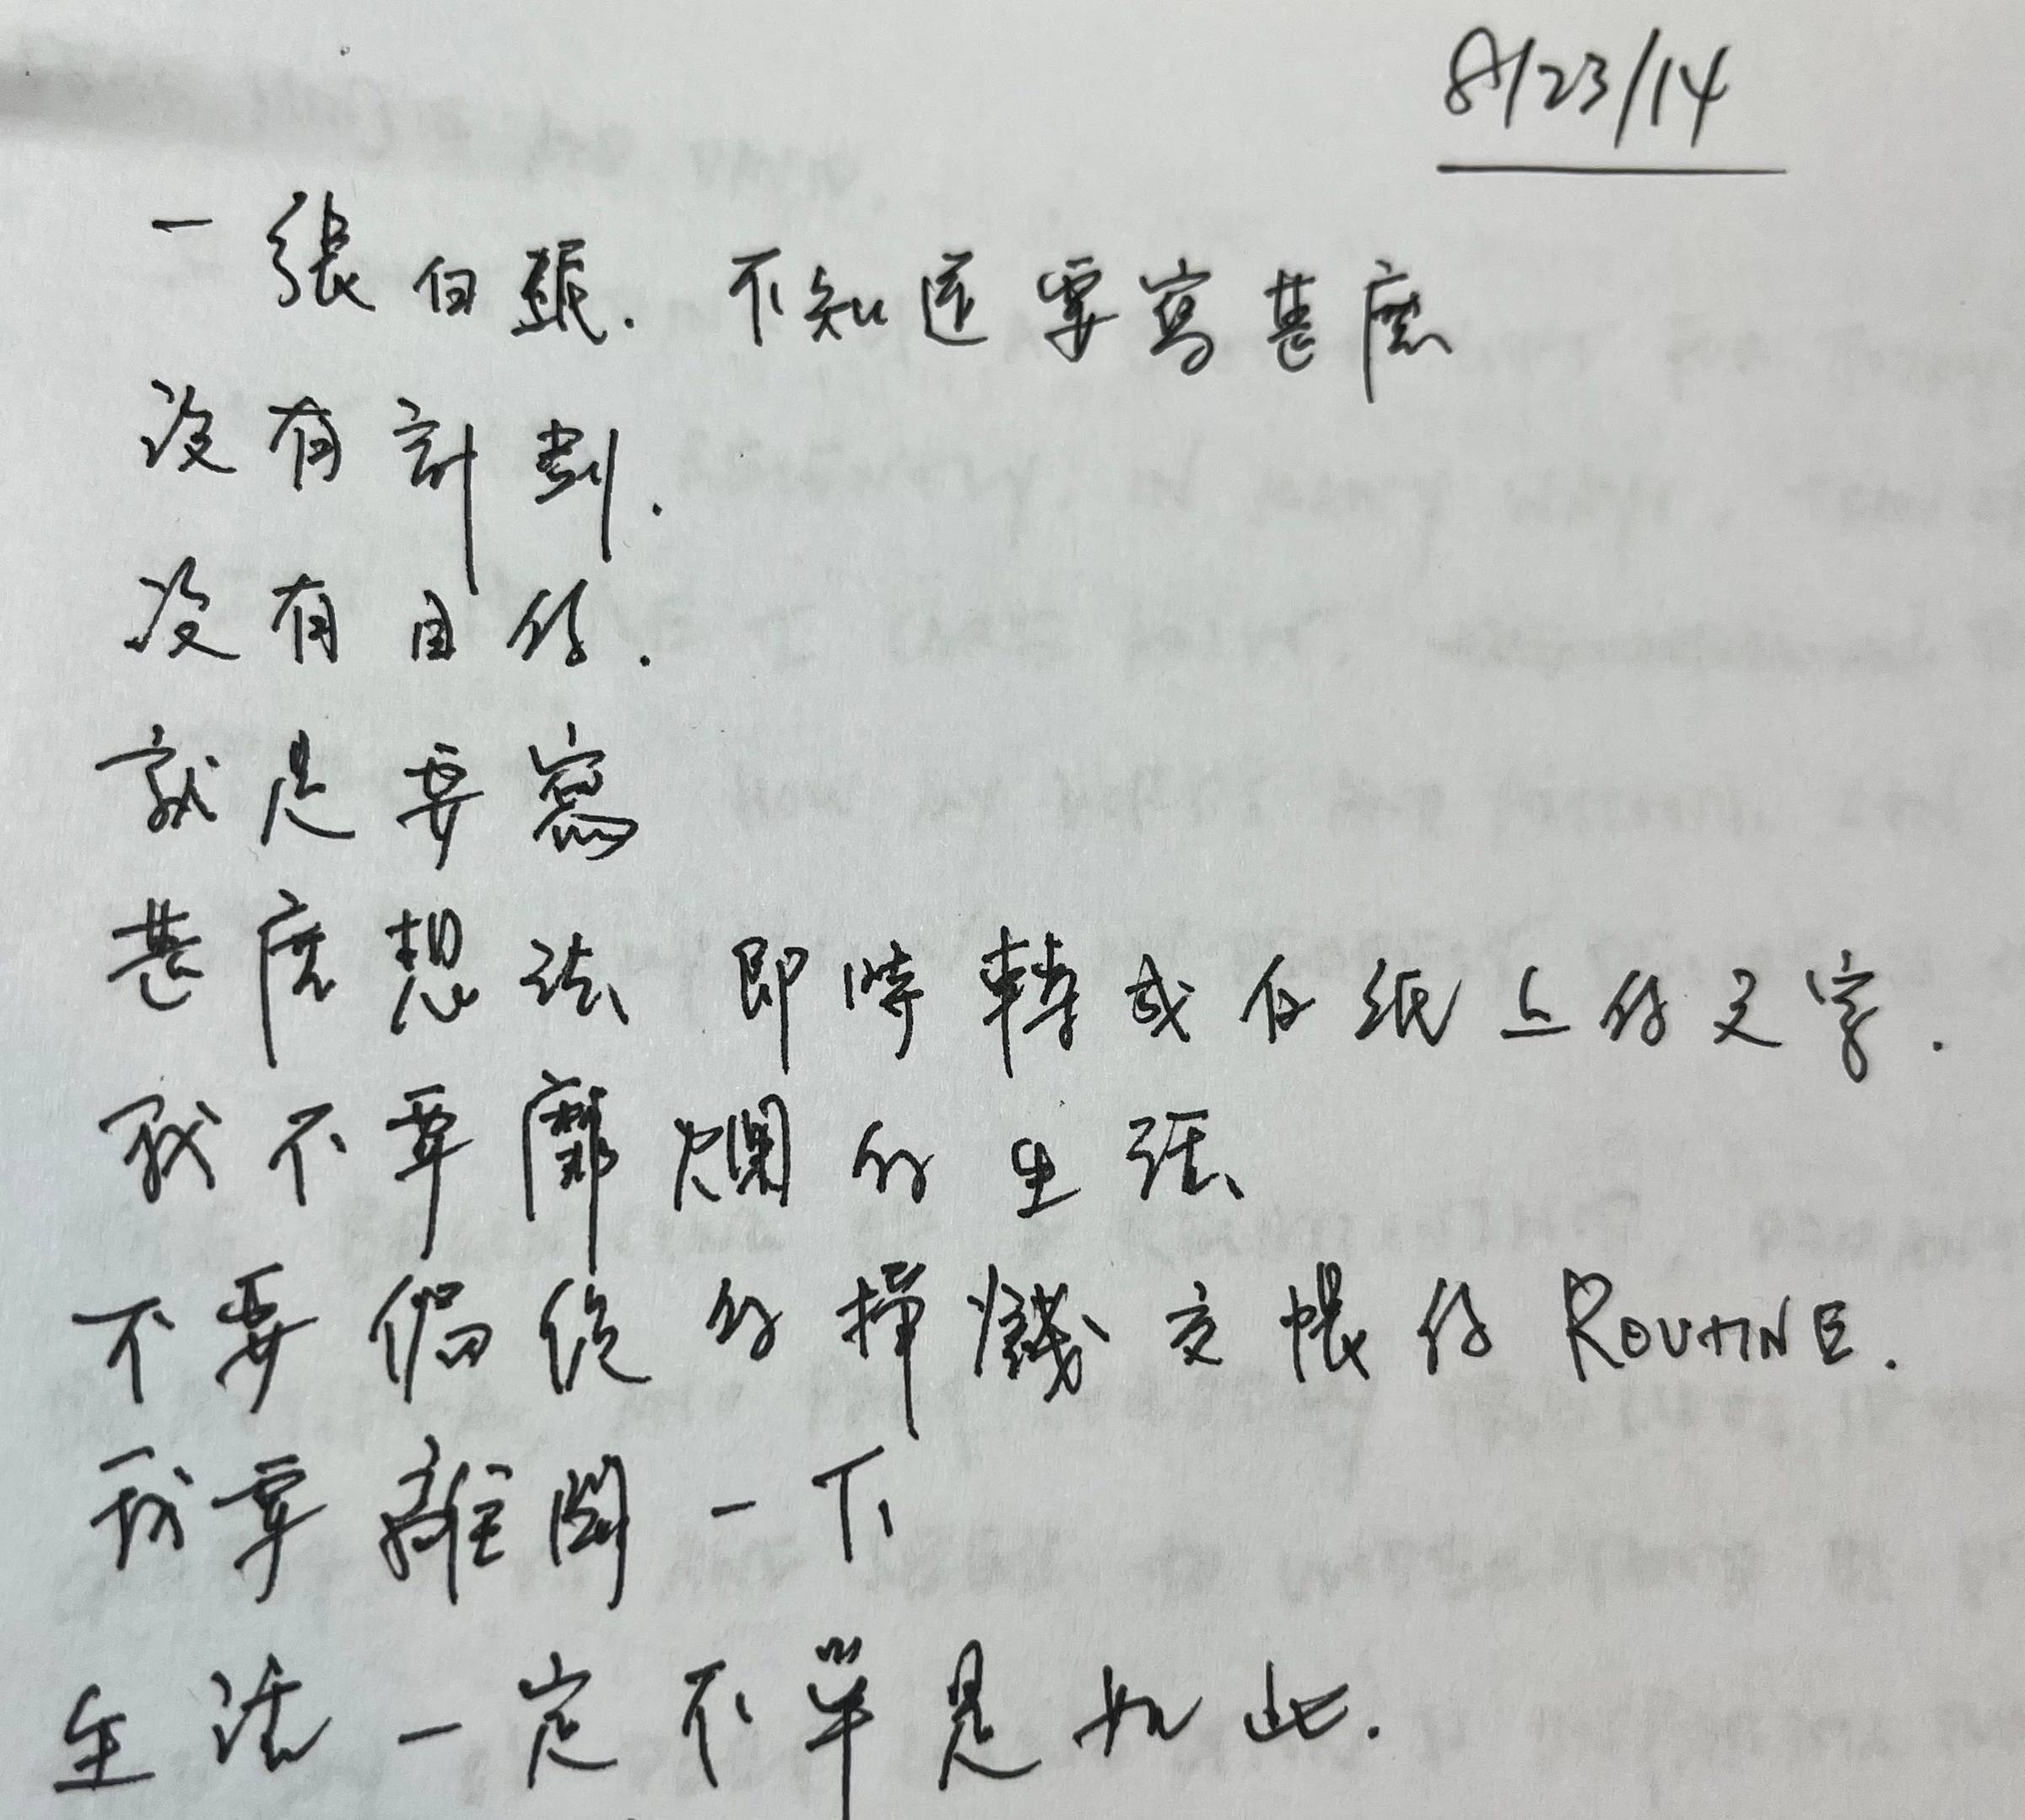 8/23/14
一張白紙. 不知道要寫甚麼
沒有計劃.
沒有目的.
就是要寫
甚麼想法 即時轉成在紙上的文字.
我不要靡爛的生活
不要 的掙錢交帳的 ROUTINE.
我要離開一下
生活一定不單是如此.